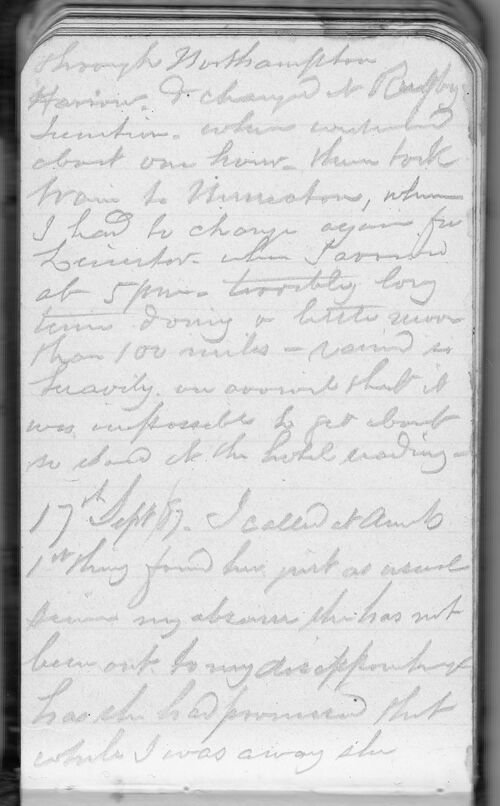 through Northampton
Harrow & changed at Rugby
Junction - where waited
about one hour - then took
train to Nuneaton, where
I had to change again for
Leicester - where I arrived
at 5 pm - terribly long
time doing a little more
than 100 miles - rained so
heavily on arrival that it
was impossible to get about
so stayed at the hotel reading -
17th Sept/87. I called at Aunts
1st thing found her just as usual
since my absence she has not
been out to my disappointment
has she had promised that
while I was away she